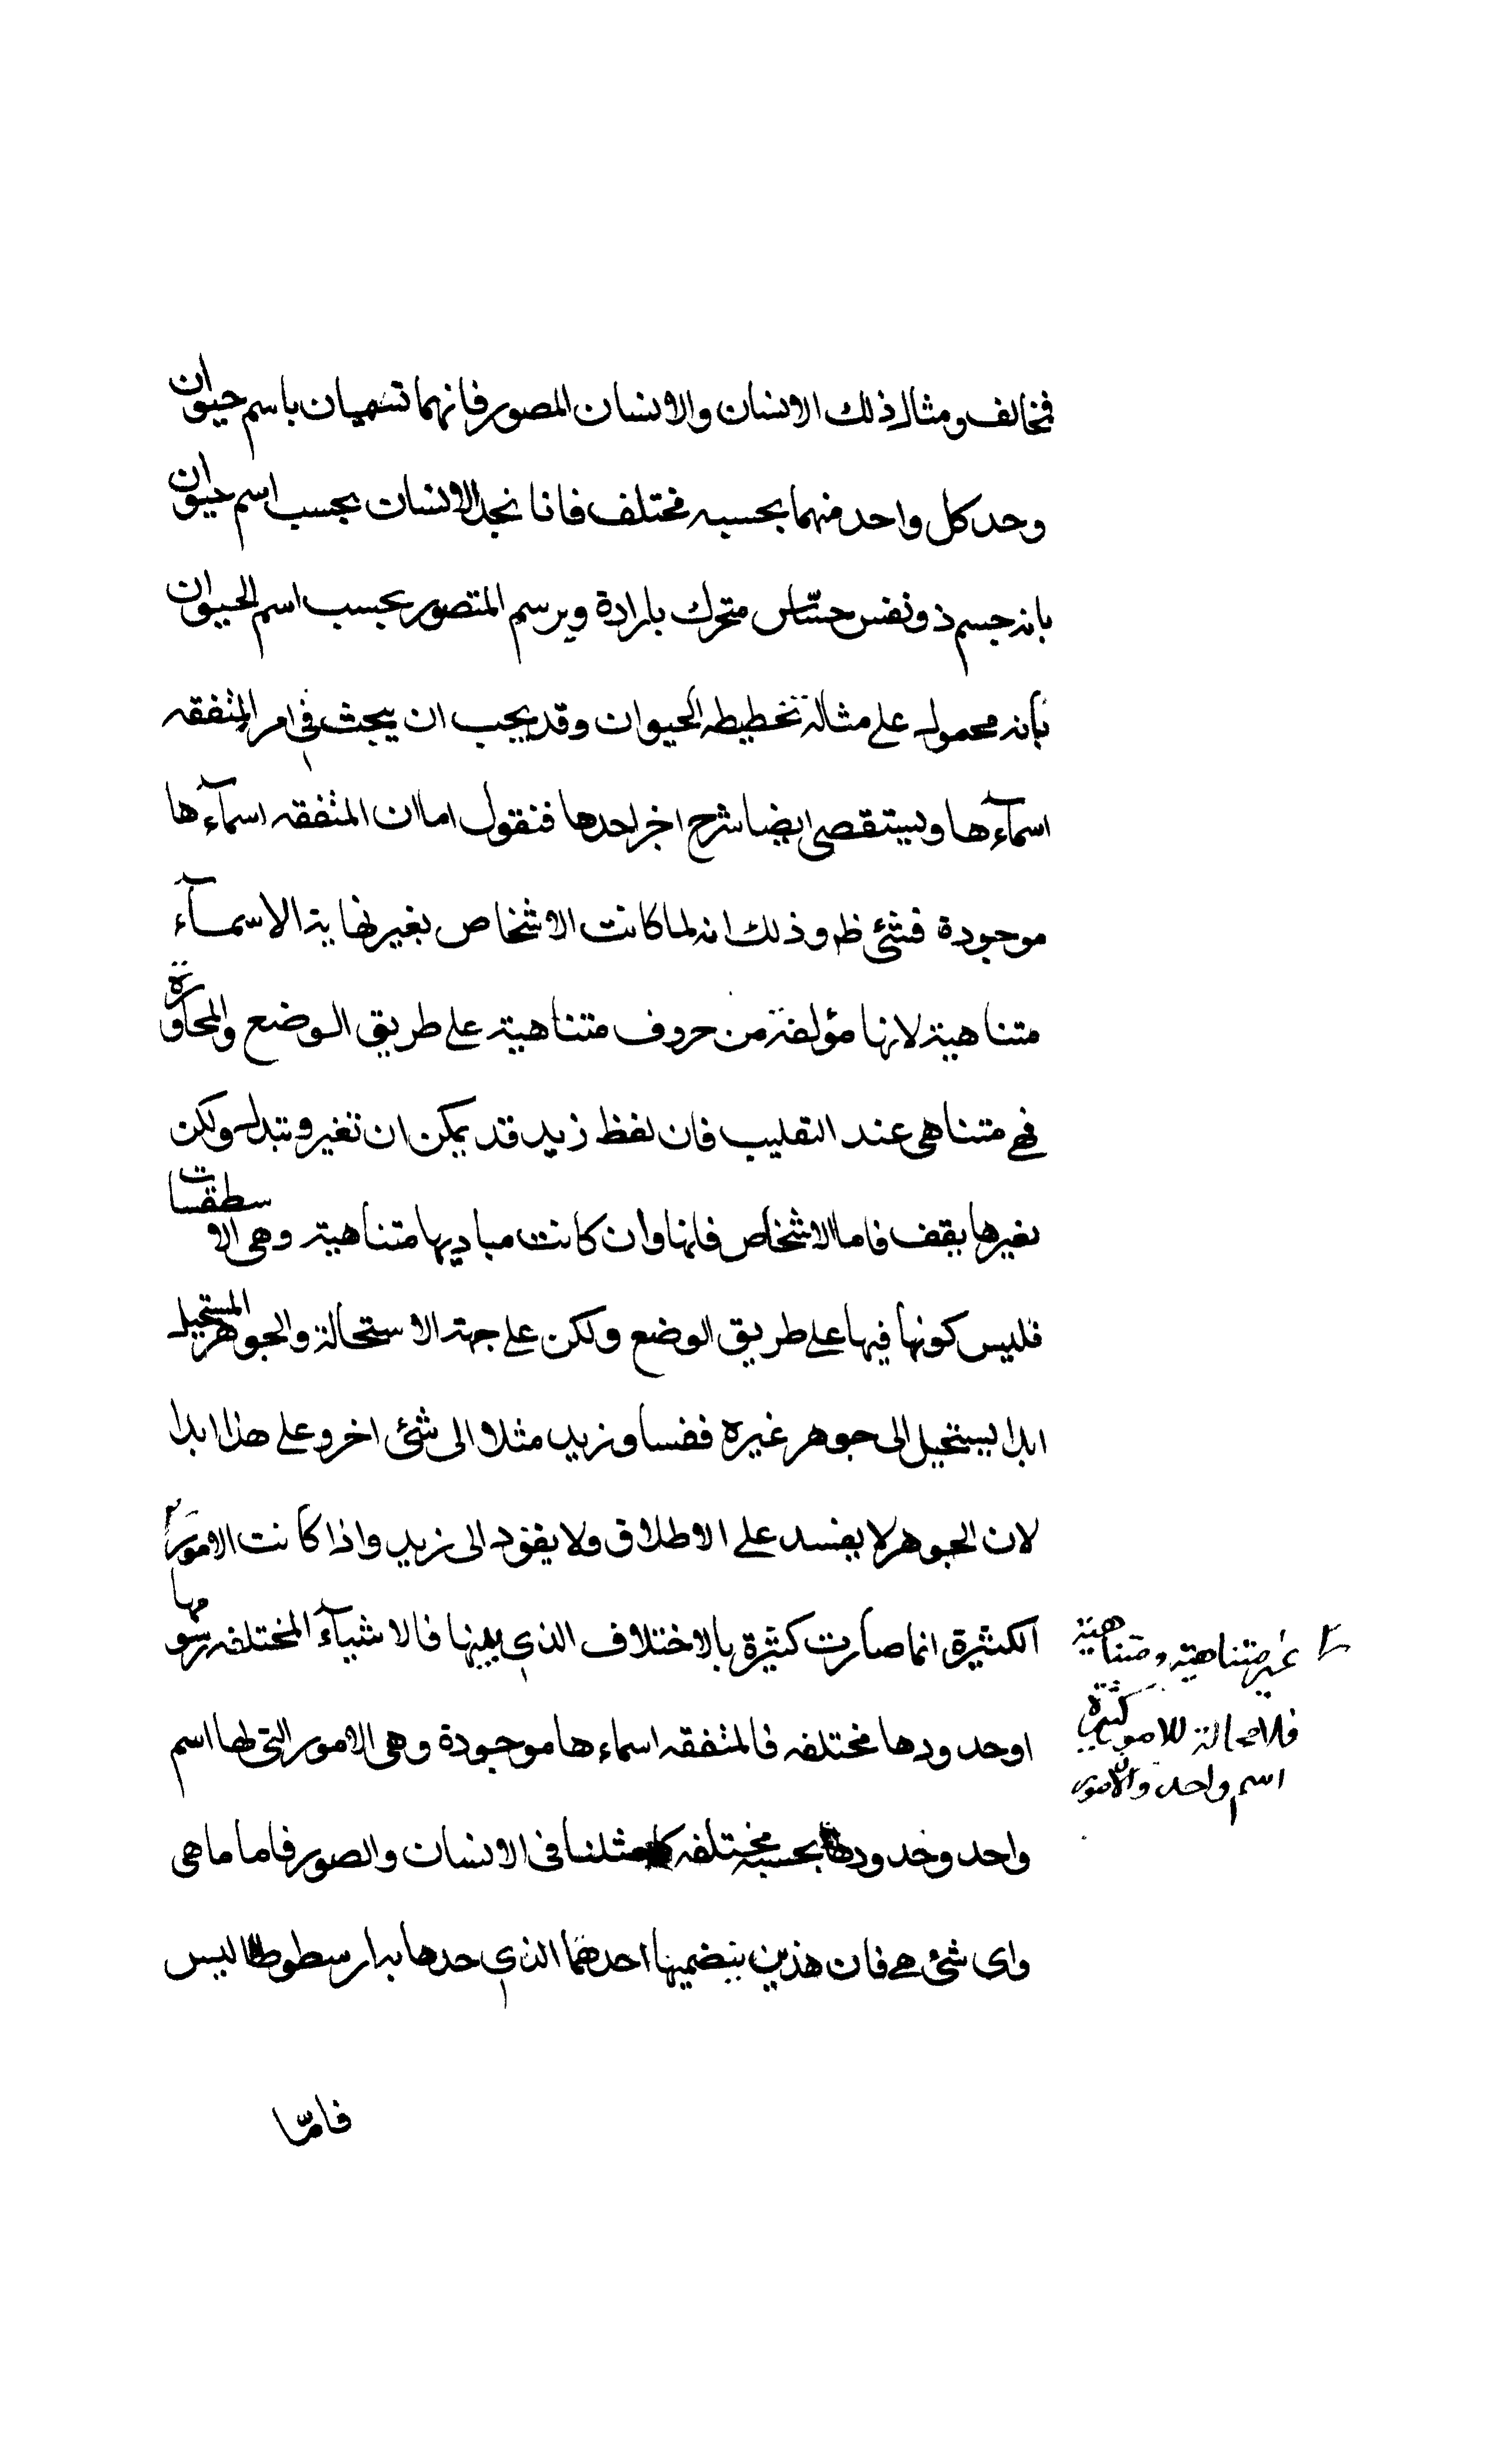 فمخالف ومثال ذلك الانسان والانسان المصور فانهما تسميان باسم حيوان
وحد كل واحد منهما بحسبه مختلف فانا نجد الانسان بحسب اسم حيوان
بانه جسم ذو نفس حسّاس متحرك بارادة ويرسم المتصور بحسب اسم الحيوان
بأنه محمول على مثالة تخطيطه الحيوان وقد يجب ان يبحث في امر المتفقه
اسمآءها ويستقصى ايضا شرح اخر احدها فنقول اما ان المتفقه اسمآءها
موجودة فشئ ظه وذلك انه لما كانت الاشخاص بغير نهاية الاسمآء
متناهية لانها مؤلفة من حروف متناهية على طريق الوضع والمجاورة
فهي متناهى عند التقليب فان لفظ زيد قد يمكن ان تغير وتبدل ولكن
بغيرها يقف فاما الاشخاص فانها وان كانت مباديها متناهية وهى الاسطقسات
فليس كونها فيها على طريق الوضع ولكن على جهة الاستحالة والجوهر المستحيل
ابدا يستحيل الى جوهر غيره ففساد زيد مثلا الى شئ اخر وعلى هذا ابدا
لان الجوهر لا يفسد على الاطلاق ولا يفود الى زيد واذا كانت الامور
الكثيرة انما صارت كثيرة بالاختلاف الذي بينها فالاشيآء المختلفه رسومها
اوحدودها مختلفه فالمتفقه اسماءها موجودة وهى الامور التي لها اسم
واحد وحدودها بحسبه مختلفه كما مثلنا فى الانسان والصور فاما ما هى
واى شئ هي فان هذين يتضمنها احدهما الذي حدها به ارسطوطاليس
فامّا
غير متناهية ومتناهية
فلا محالة للامور كثيرة
اسم واحد والامور